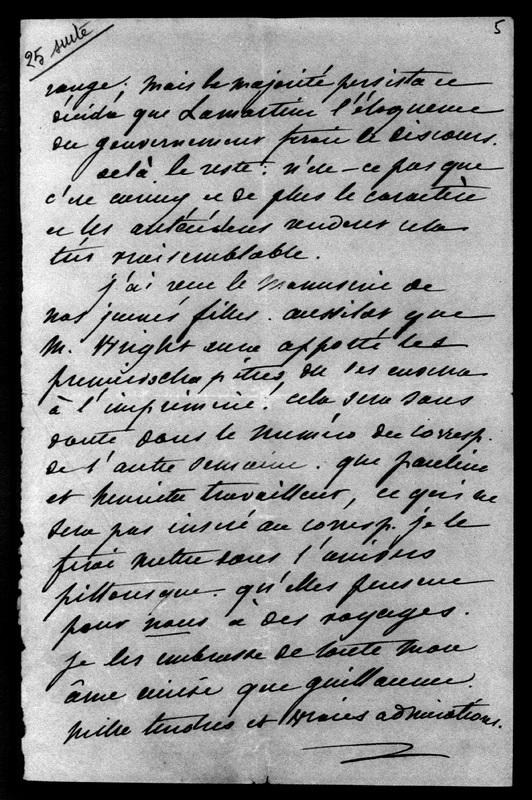 25 suite
5
rouge; mais la majorité persista et
décida que Lamartine l'éloquence
du gouvernement ferait le discours.
De là le reste: n'est-ce pas que
c'est curieux et de plus le caractère
et les antécédents rendent cela
très vraisemblable.
j'ai reçu le manuscrit de
nos jeunes filles. aussitôt que
M. Wright aura apporté les
premiers chapitres, on les enverra
à l'imprimerie. cela sera sans
doute dans le numéro du corresp.
de l'autre semaine. que pauline
et henriette travaillent, ce qui ne
sera pas inséré au corresp. je le
ferai mettre dans l'univers
pittoresque. qu'elles pensent
pour nous à des voyages.
je les embrasse de toute mon
âme ainsi que guillaume.
mille tendres et vraies admirations.